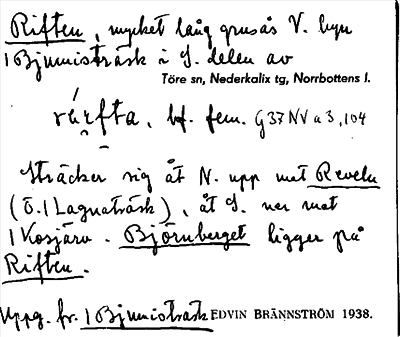 Riften, mycket lång grusås V. byn
1 Bjumisträsk i S. delen av
Töre sn, Nederkalix tg, Norrbottens l.
rı́fta, bf. fem. G37 NV a 3, 104
Sträcker sig åt N. upp mot Reveln
(Ö. 1 Lagnaträsk), åt S. ner mot
1 Kosjärv. Björnberget ligger på
Riften.
Uppg. fr. 1 Bjumisträsk EDVIN BRÄNNSTRÖM 1938.